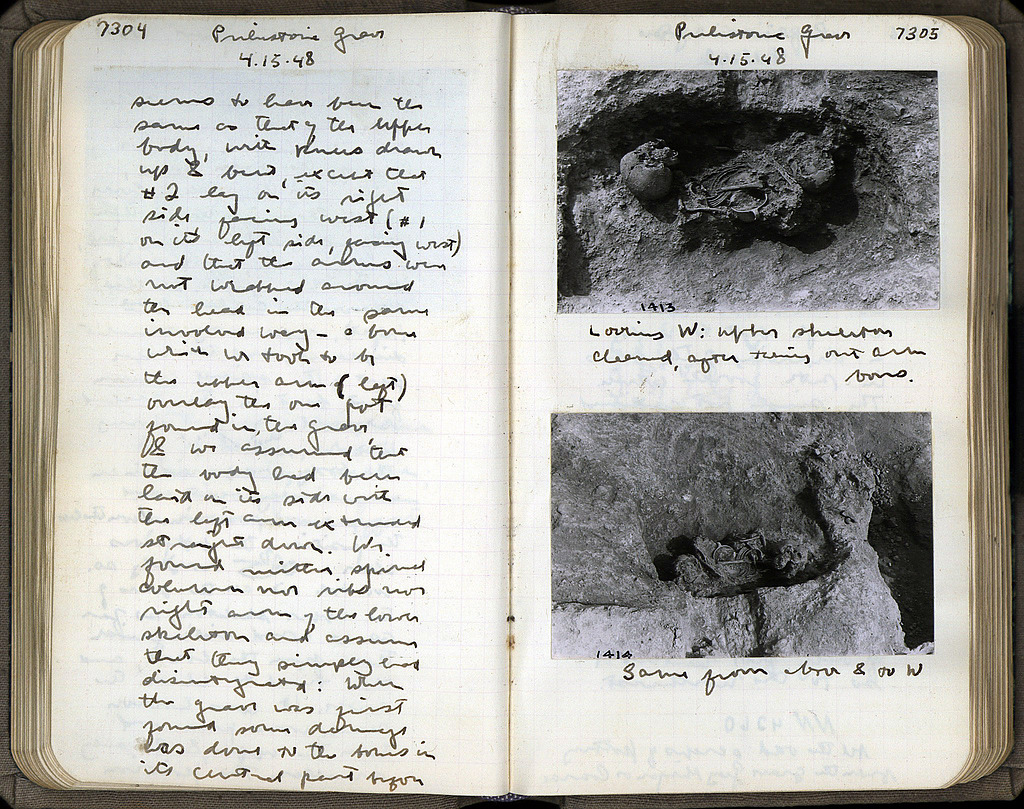 7304
Prehistoric Grave
4.15.48
seems to have been the
same as that of the upper
body, with knees drawn
up & bent, except that
#2 lay on its right
side facing west (#1
on its left side, facing west)
and that the arms were
not wrapped around
the head in the same
involved way – a bone
which we took to be
the upper arm (left)
overlay the one pot
found in the grave,
& we assumed that
the body had been
laid on its side with
the left arm extended
straight down. We
found neither spinal
column nor ribs nor
right arm of the lower
skeleton and assume
that they simply had
disintegrated: When
the grave was first
found some damage
was done to the bones in
its central part before
Prehistoric Grave
7305
4.15.48
1413
Looking W: upper skeleton
cleaned, after taking out arm
bones.
1414
Same from above & to W